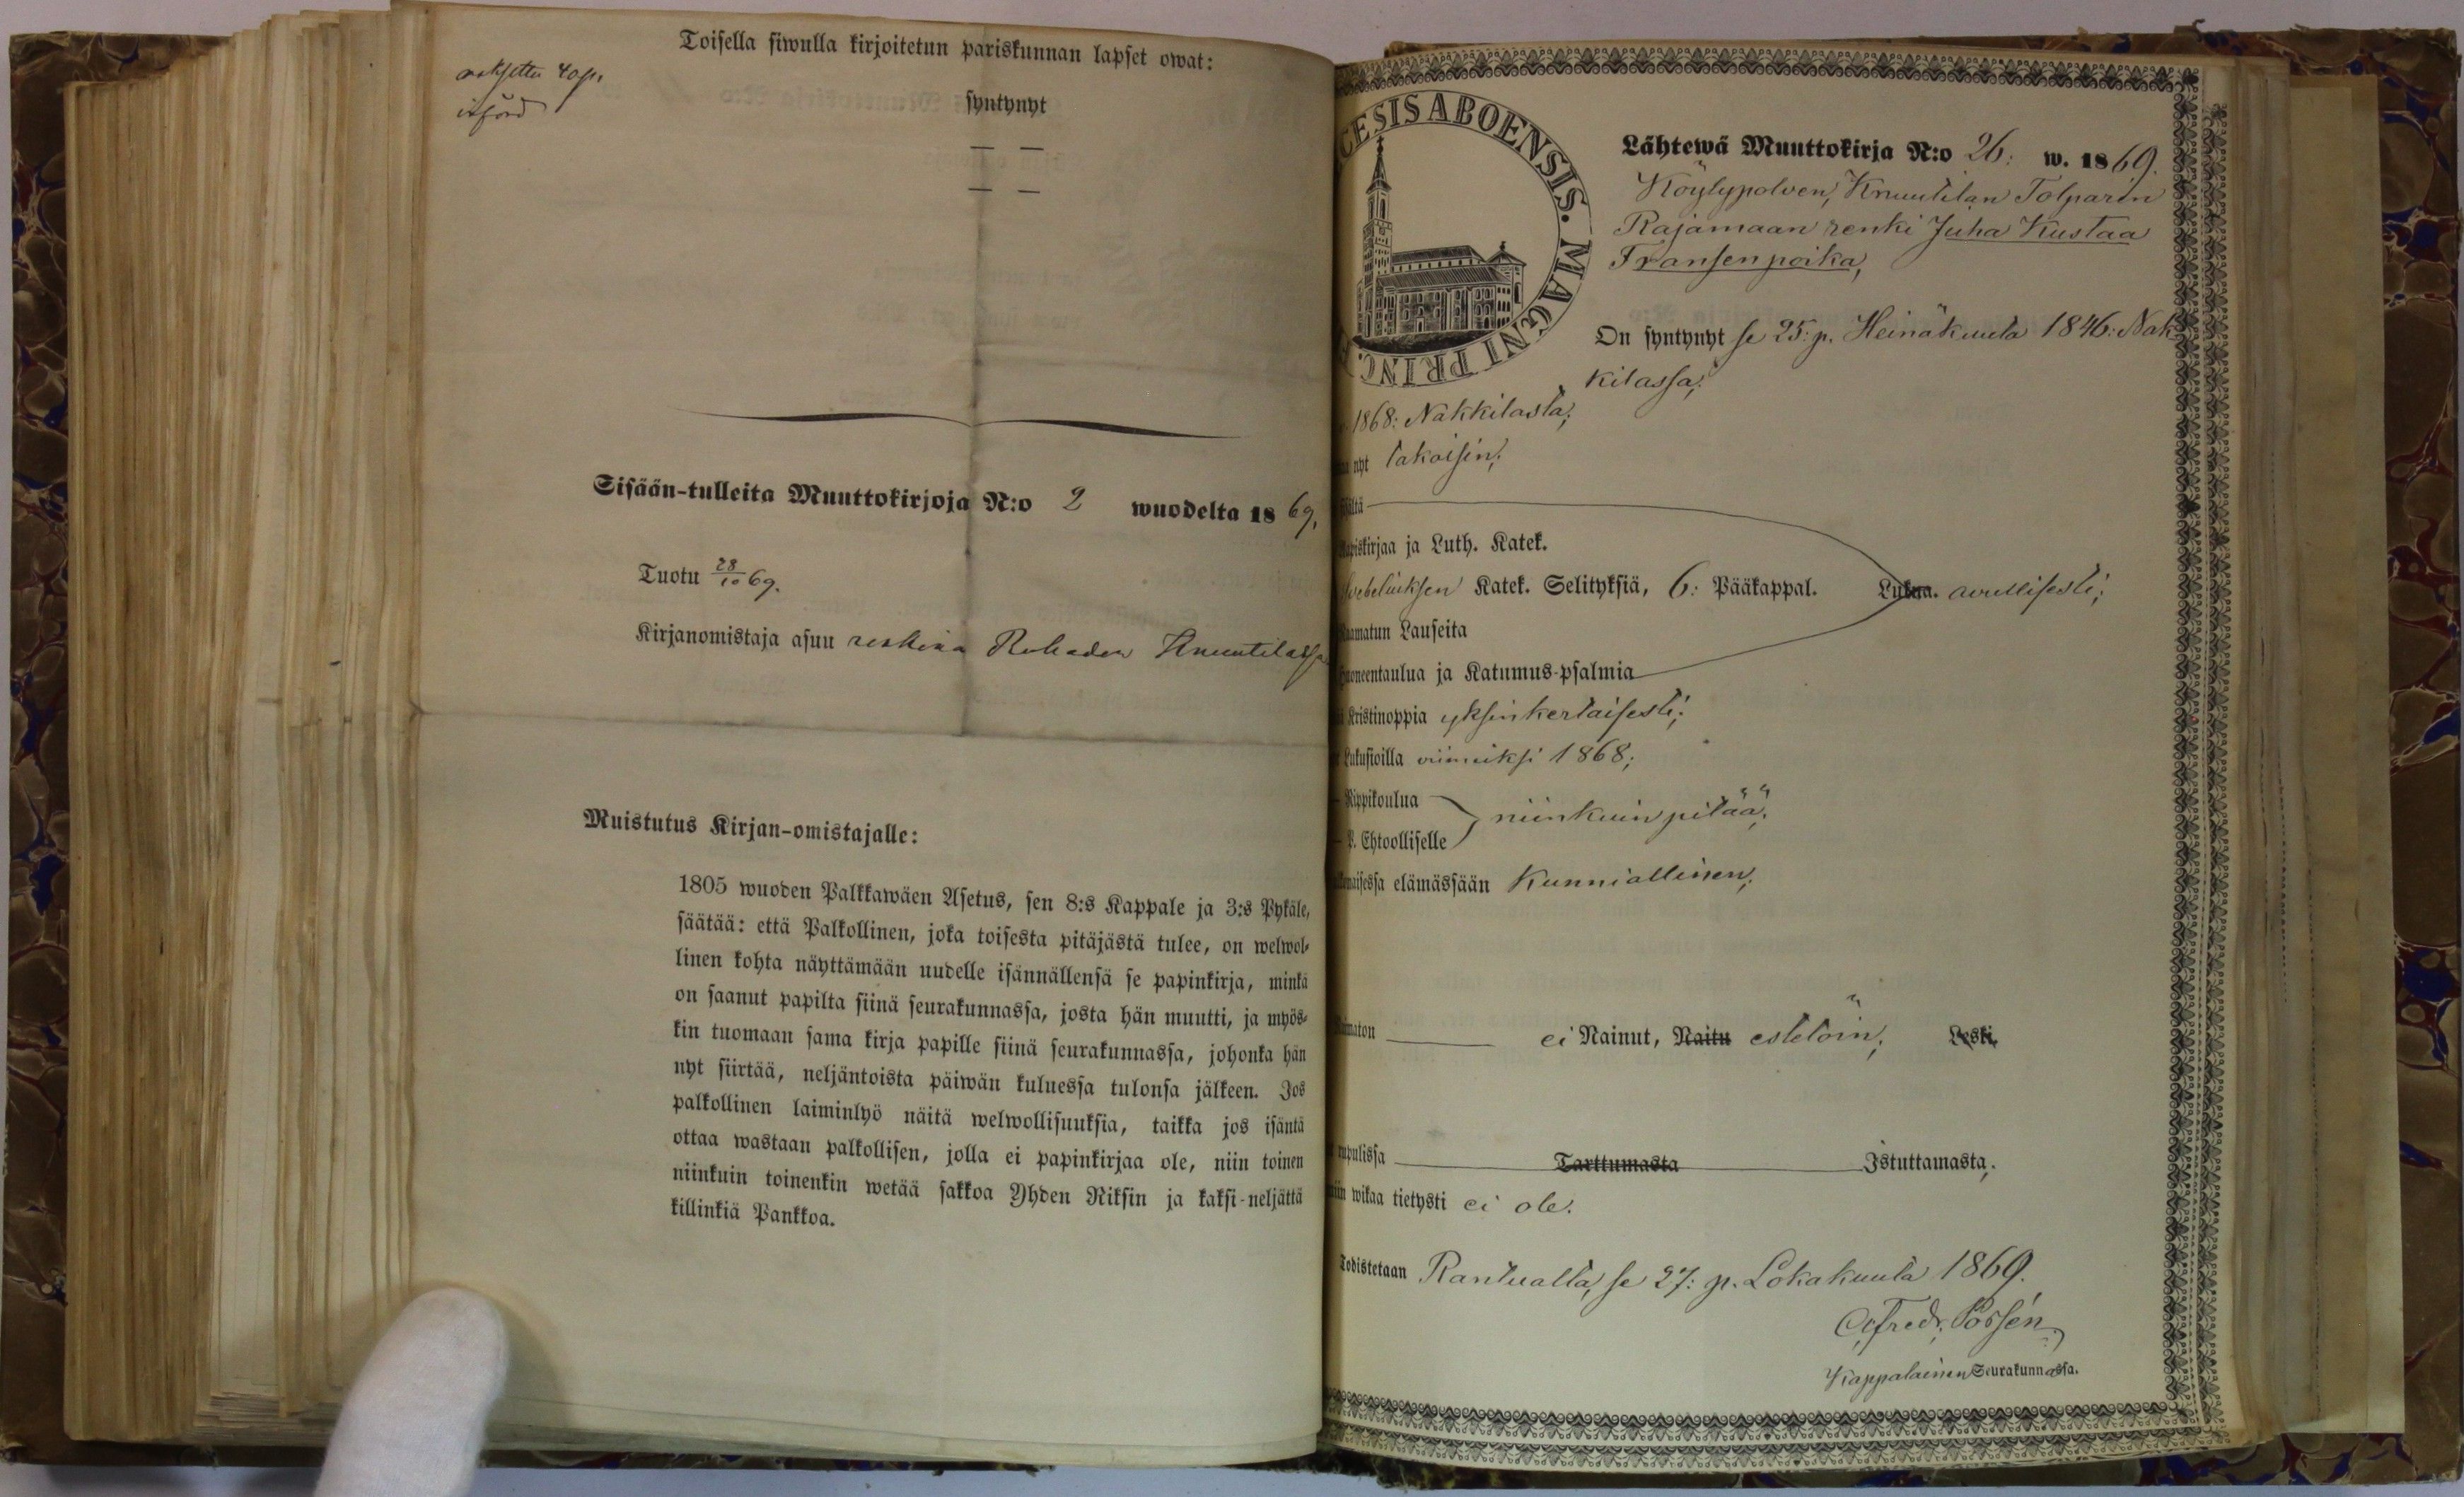 Toisella siwulla kirjoitetun pariskunnan lapset owat:
maksettu 40 p.
införd
syntynyt
— —
— —
Sisään-tulleita Muuttokirjoja N:o 2 wuodelta 1869,
Tuotu 28/10 69.
Kirjanomistaja asuu renkinä Knuutilassa
Muistutus Kirjan-omistajalle:
1805 wuoden Palkkawäen Asetus, sen 8:s Kappale ja 3:s Pykäle,
säätää: että Palkollinen, joka toisesta pitäjästä tulee, on welwol-
linen kohta näyttämään uudelle isännällensä se papinkirja, minkä
on saanut papilta siinä seurakunnassa, josta hän muutti, ja myös-
kin tuomaan sama kirja papille siinä seurakunnassa, johonka hän
nyt siirtää, neljäntoista päiwän kuluessa tulonsa jälkeen. Jos
palkollinen laiminlyö näitä welwollisuuksia, taikka jos isäntä
ottaa wastaan palkollisen, jolla ei papinkirjaa ole, niin toinen
niinkuin toinenkin wetää sakkoa Yhden Riksin ja kaksi-neljättä
killinkiä Pankkoa.
CESIS ABOENSIS. MAGNI PRINC.
Lähtewä Muuttokirja N:o 26: w. 1869.
Köylypolven, Knuutilan Tolparin
Rajamaan renki Juha Kustaa
Fransenpoika,
On syntynyt se 25: p. Heinäkuuta 1846: Nak
kilassa;
1868: Nakkilasta;
nyt takaisin;
ältä
piskirjaa ja Luth. Katek.
webeliuksen Katek. Selityksiä, 6: Pääkappal. Lukua. avullisesti;
aamatun Lauseita
uoneentaulua ja Katumus-psalmia
Kristinoppia yksinkertaisesti;
Lukusioilla viimeiksi 1868;
Rippikoulua
niinkuin pitää;
P. Ehtoolliselle
naisessa elämässään Kunniallinen;
imaton ei Nainut, Naitu estetöin; Leski.
rupulissa Tarttumasta Istuttamasta;
niin wikaa tietysti ei ole.
Todistetaan Rantualla, se 27: p. Lokakuuta 1869.
Alfredr. Possén
Kappalainen Seurakunnassa.